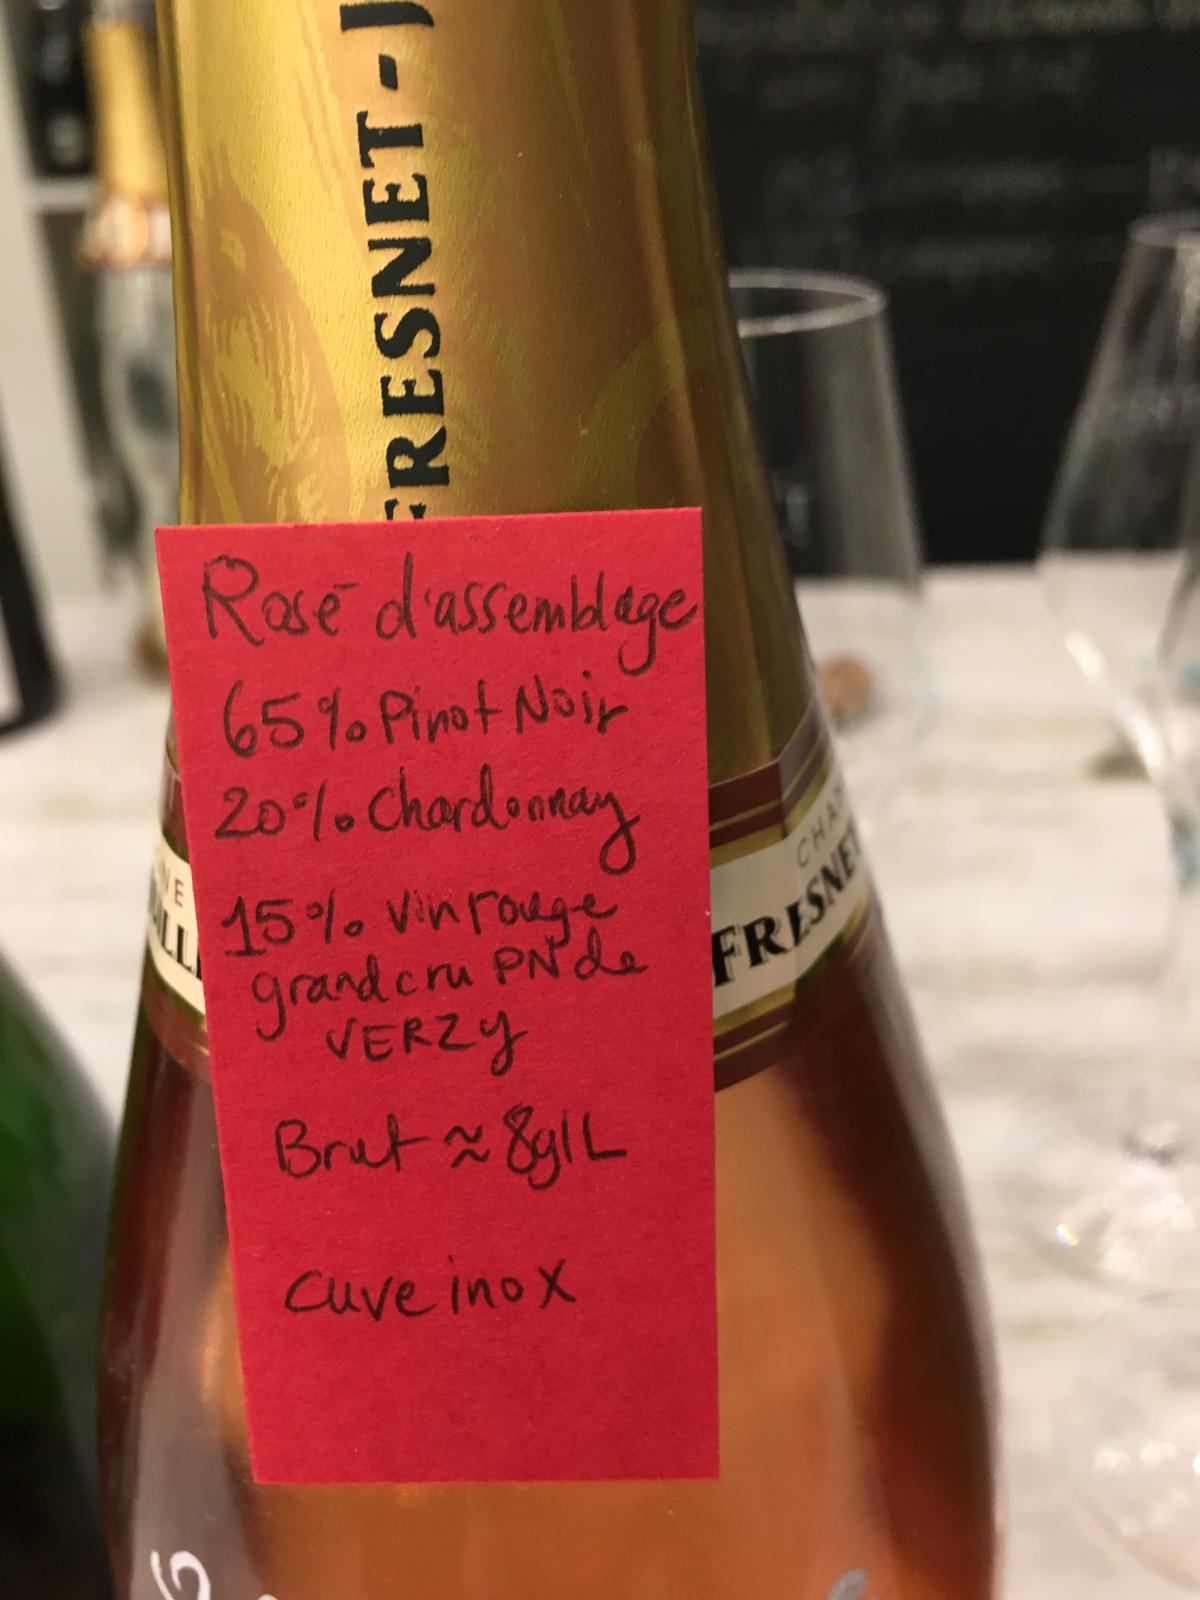 FRESNET-J
Rosé d'assemblage
65% Pinot Noir
20% Chardonnay
15% vin rouge
grand cru PN de
VERZY
Brut ≈ 8g/L
cuve inox
CHA
FRESNE
NE
ILL